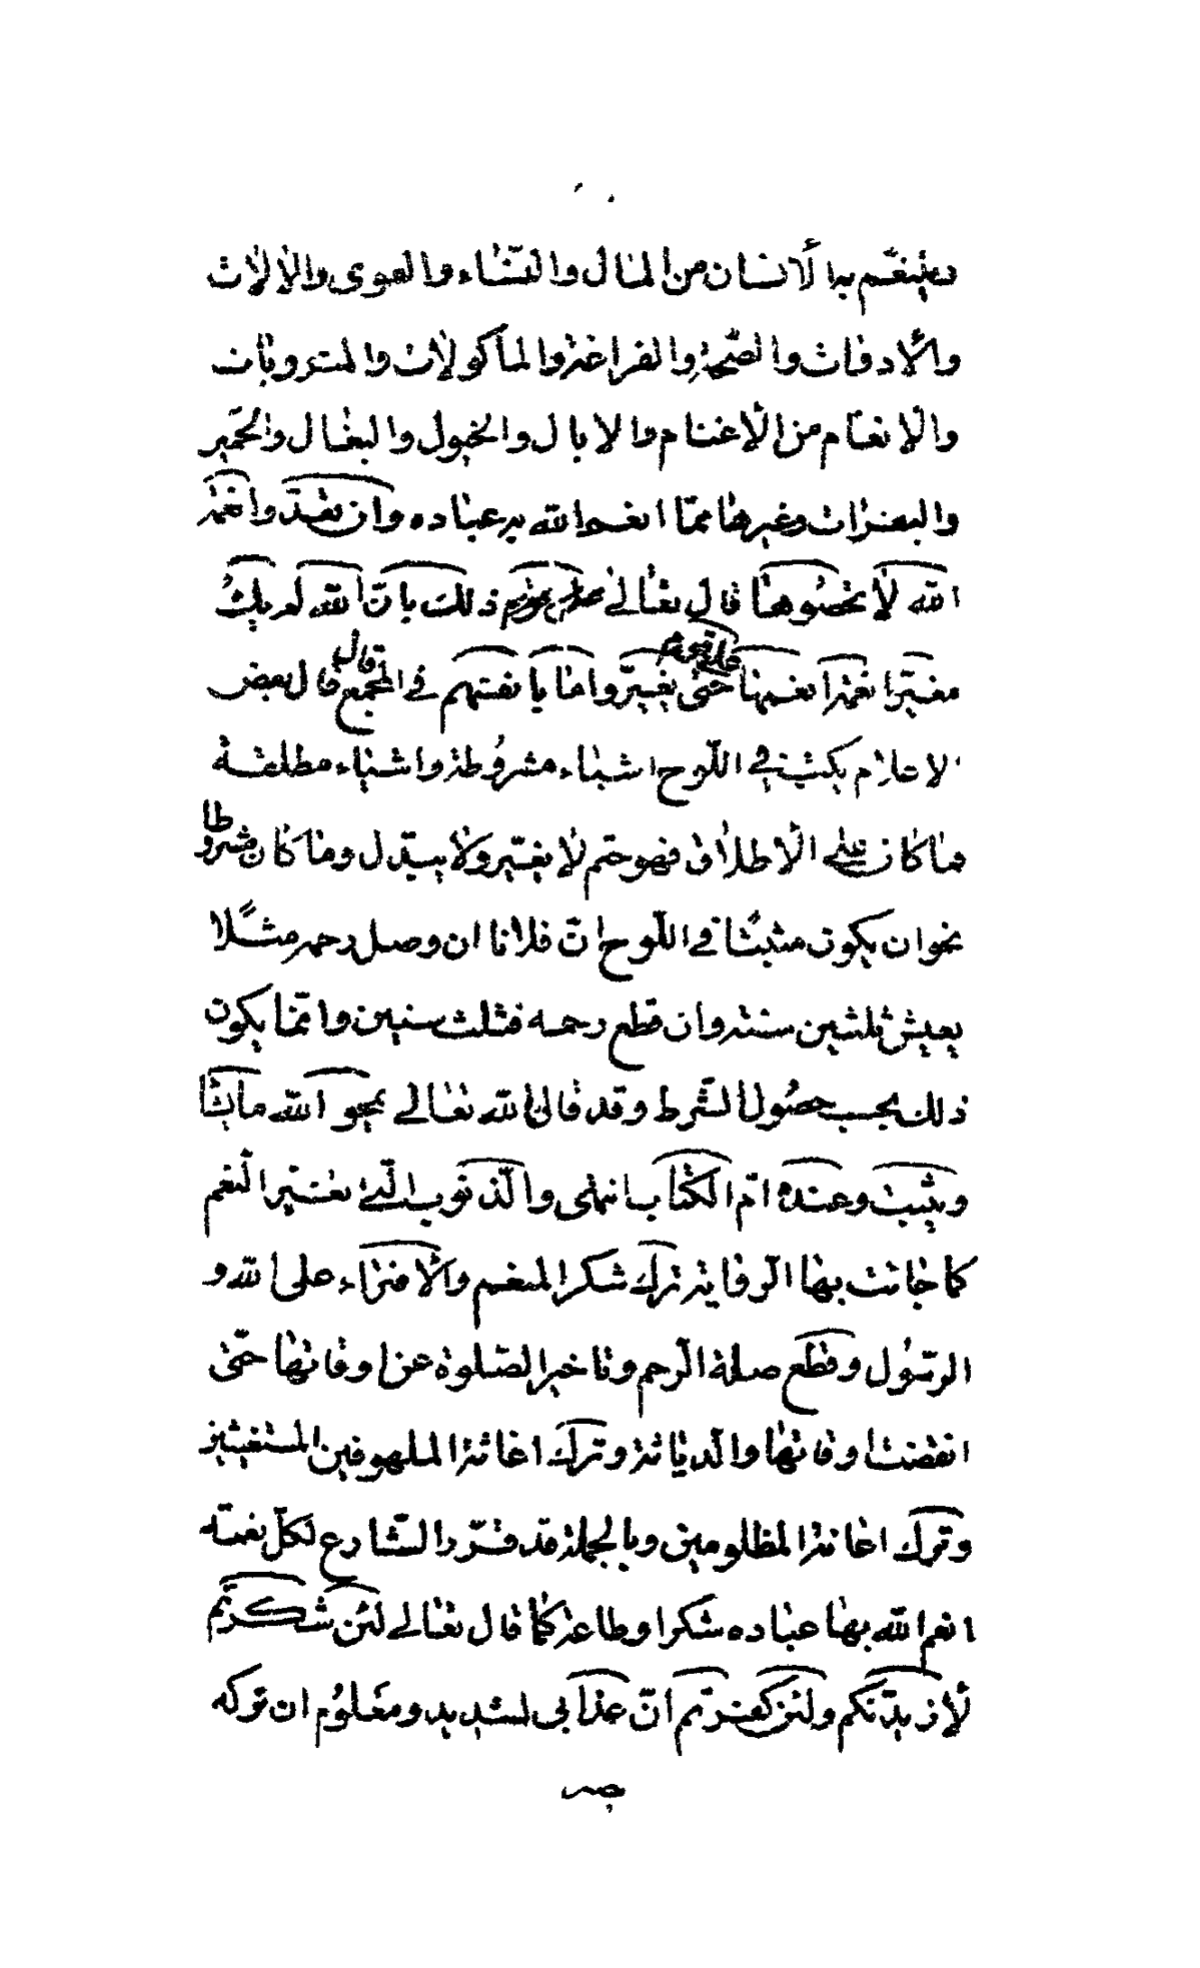 ويتنعّم به الأنسان من المال والنّساء والقوى والالات
والأوقات والصّحة والفراغة والمأكولات والمشروبات
والانعام من الاغنام والابال والخيول والبغال والحمير
والبقرات وغيرها ممّا انعم الله به عباده وان تعدّوا نعمة
الله لا تحصوها قال تعالى ذلك بانّ الله لم يك
مغيّرا نعمة انعمها على قوم حتى يغيّروا ما بانفسهم في المجمع قال قال بعض
الاعلام يكتب في اللّوح اشياء مشروطة واشياء مطلقة
فما كان على الاطلاق فهو حتم لا يغيّر ولا يبدّل وما كان مشروطا
نحو ان يكون مثبتا في اللّوح انّ فلانا ان وصل رحمه مثلًا
يعيش ثلثين سنة وان قطع رحمه فثلث سنين وانّما يكون
ذلك بحسب حصول الشّرط وقد قال الله تعالى يمحو الله ما يشا
ويثبت وعنده امّ الكتاب انتهى والّذنوب الّتى تغيّر النّعم
كما جائت بها الرّواية ترك شكر المنعم والافتراء على الله و
الرّسول وقطع صلة الرّحم وتاخير الصّلوة عن اوقاتها حتّى
انقضت اوقاتها والدّياثة وترك اغاثة الملهوفين المستغيثين
وترك اعانة المظلومين وبالجملة قد قرّر الشّارع لكلّ نعمة
انعم الله بها عباده شكرا وطاعة كما قال تعالى لئن شكرتم
لازيدّنكم ولئن كفرتم انّ عذابى لشديد ومعلوم ان تركه